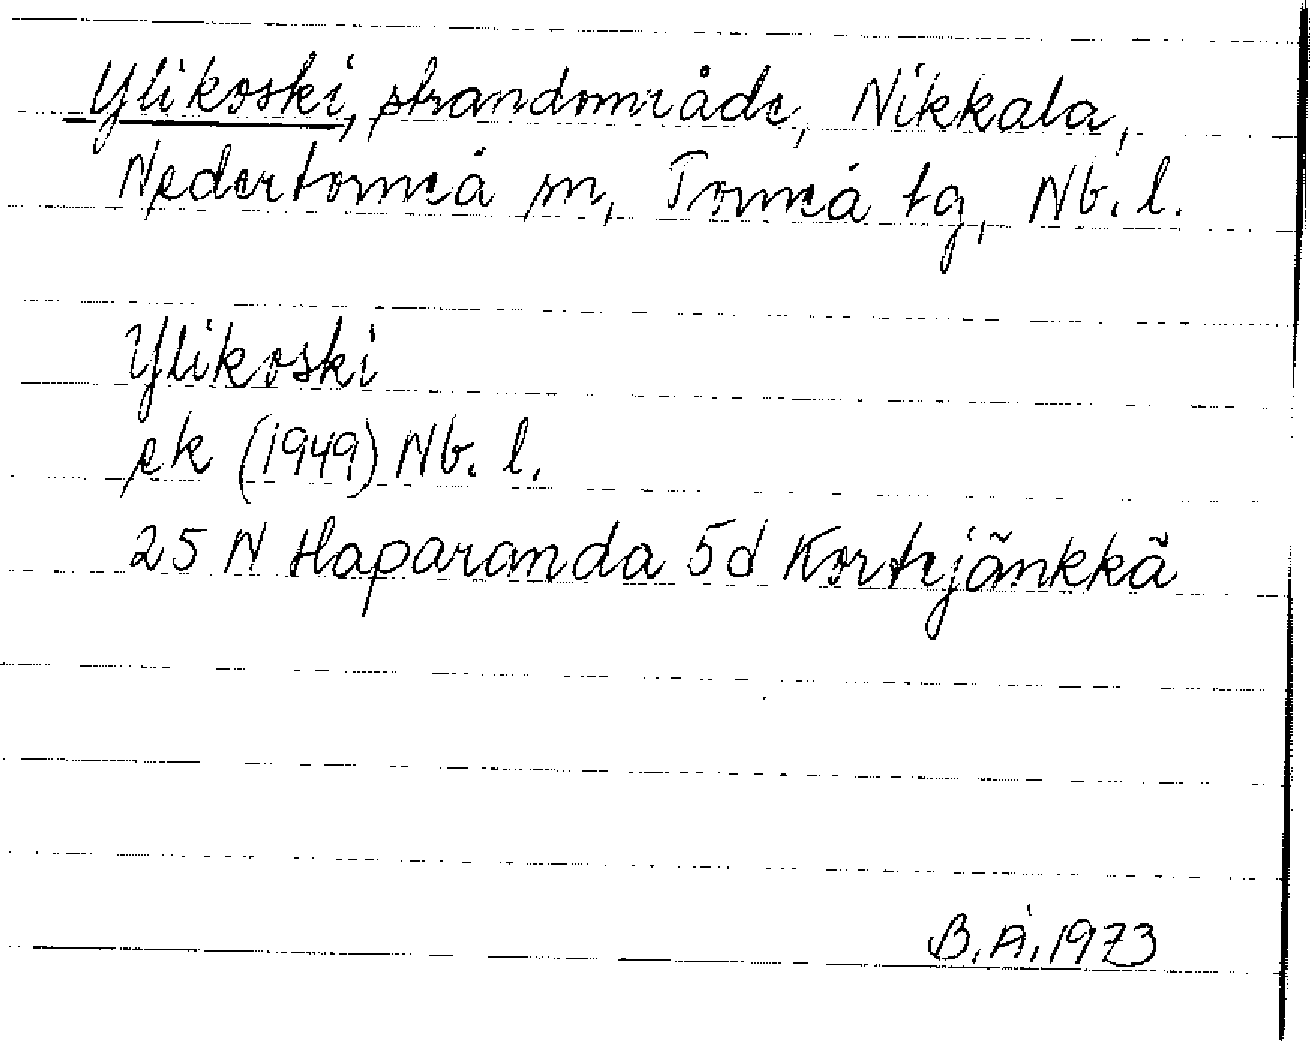 Ylikoski, strandområde, Nikkala,
Nedertorneå sn, Torneå tg, Nb. l.
Ylikoski
ek (1949) Nb. l.
25 N Haparanda 5d Kortejänkkä
B. Å. 1973